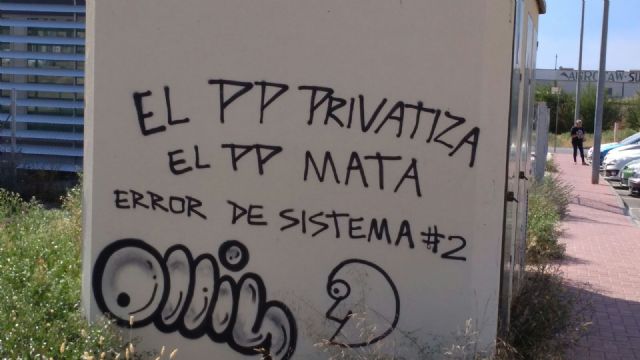 EL PP PRIVATIZA
EL PP MATA
ERROR DE SISTEMA #2